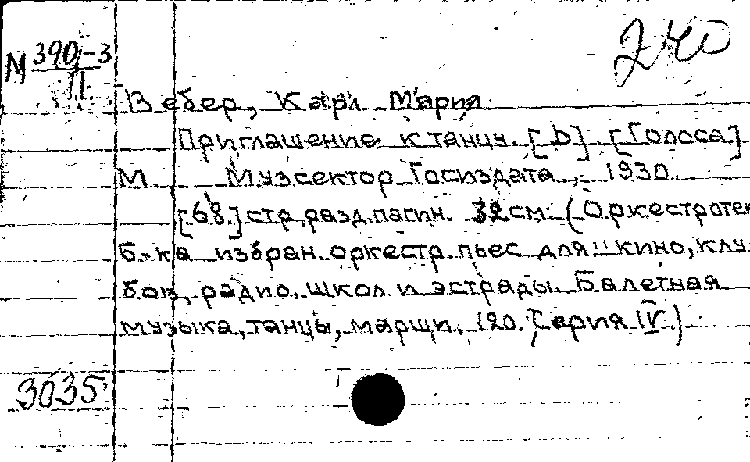 М 390-3
II
240
Вебер, Карл Мария
Приглашение к танцу. [D] [Голоса]
М. Музсектор Госиздата, 1930
[68] стр. разд. пагин. 32 см. (Оркестротек
б-ка избран. оркестр. пьес для кино, клу
бов, радио, школ и эстрады. Балетная
музыка, танцы, марши. 120. Серия IV)
3035